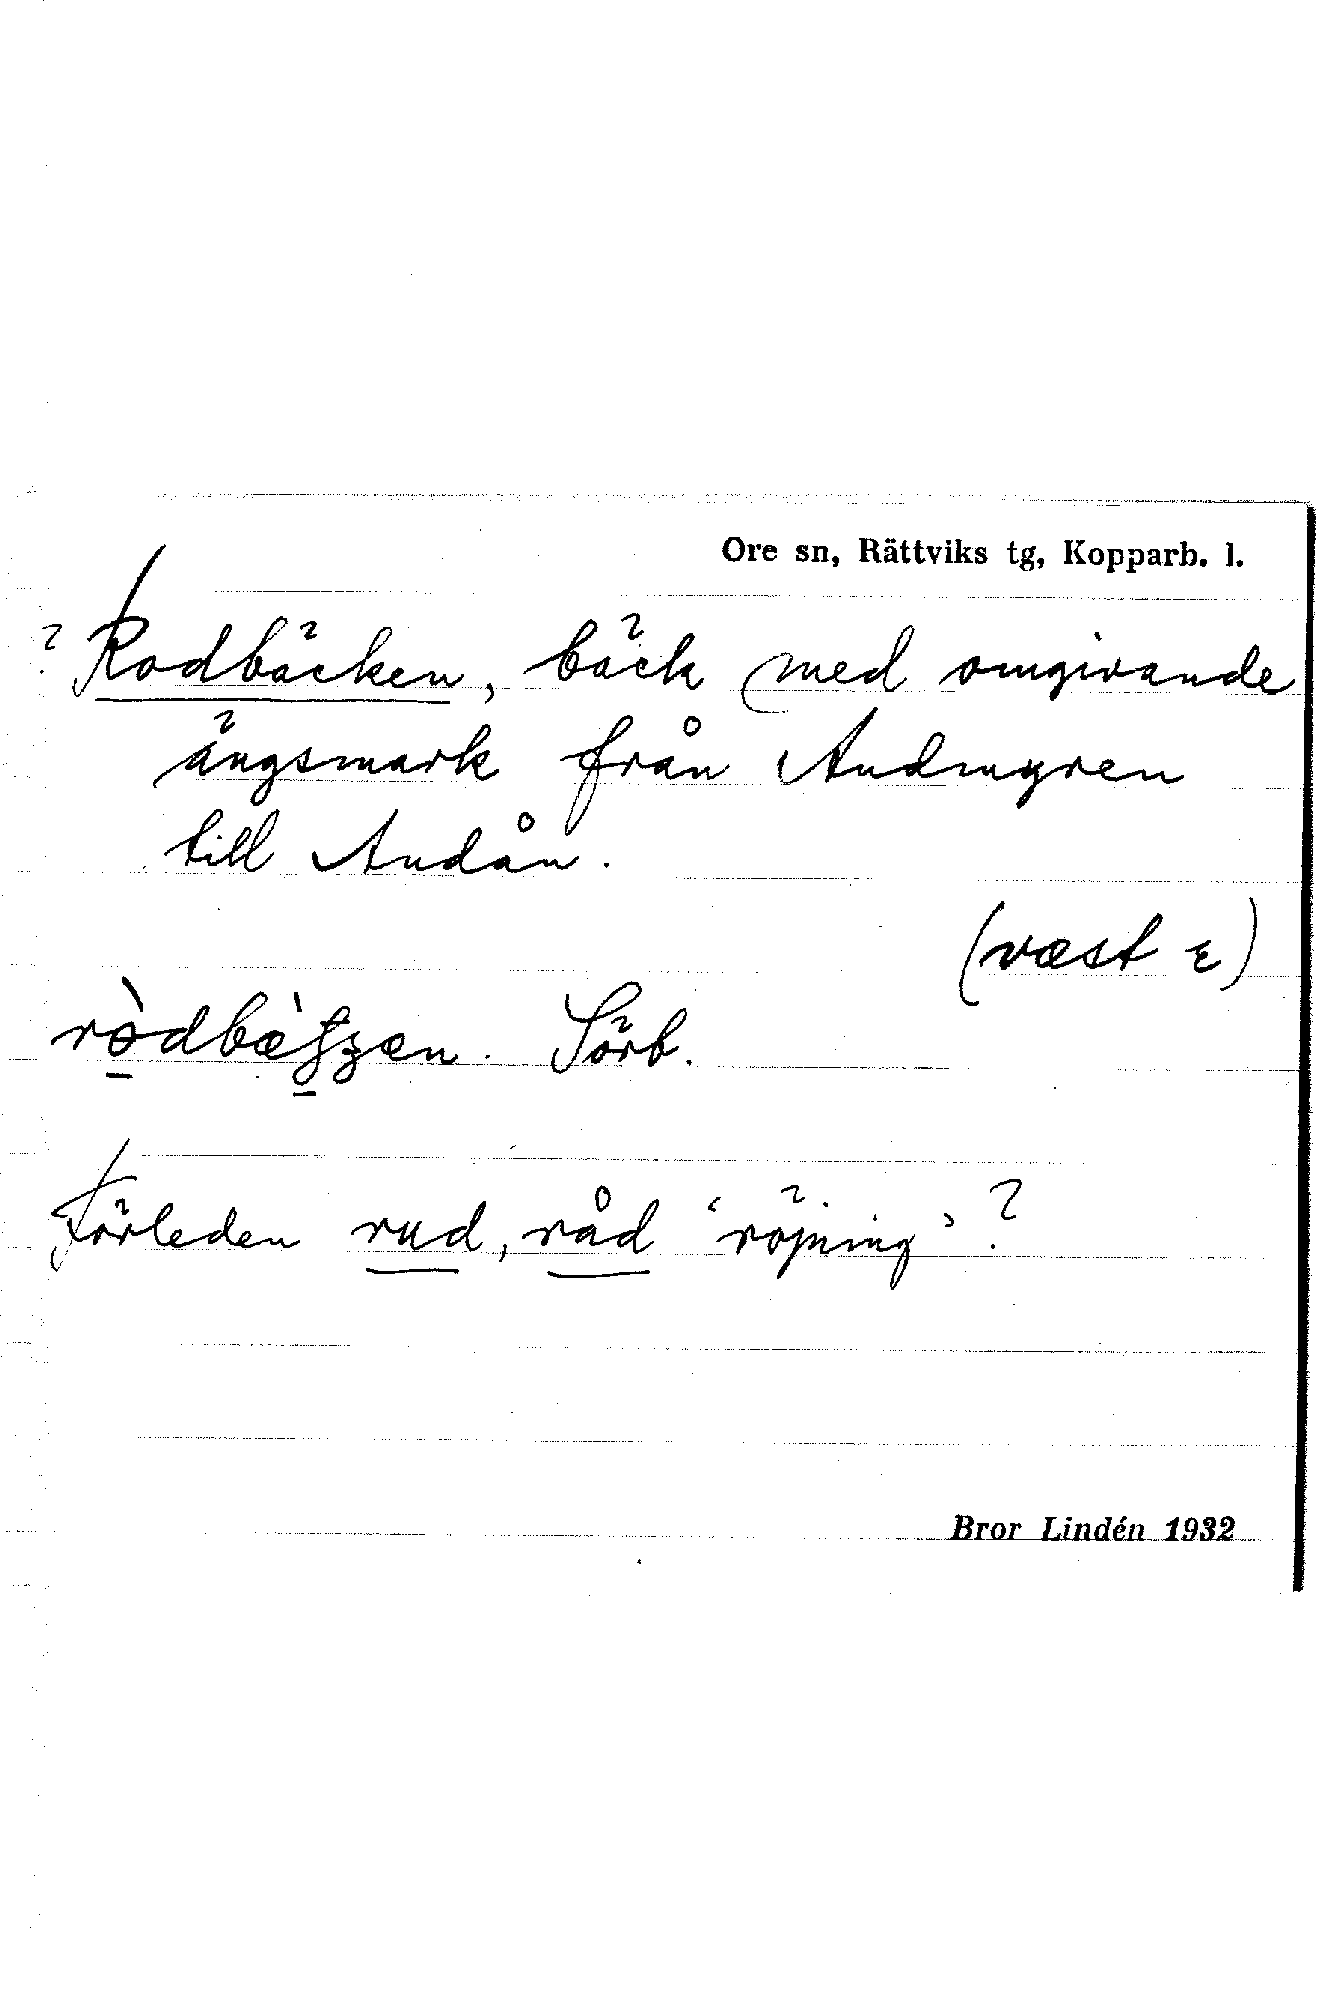 Ore sn, Rättviks tg, Kopparb. l.
? Rodbäcken, bäck med omgivande
ängsmark från Andmyren
till Andån.
(væst ε)
Sörb.
Förleden rud, råd ‘röjning’?
Bror Lindén 1932